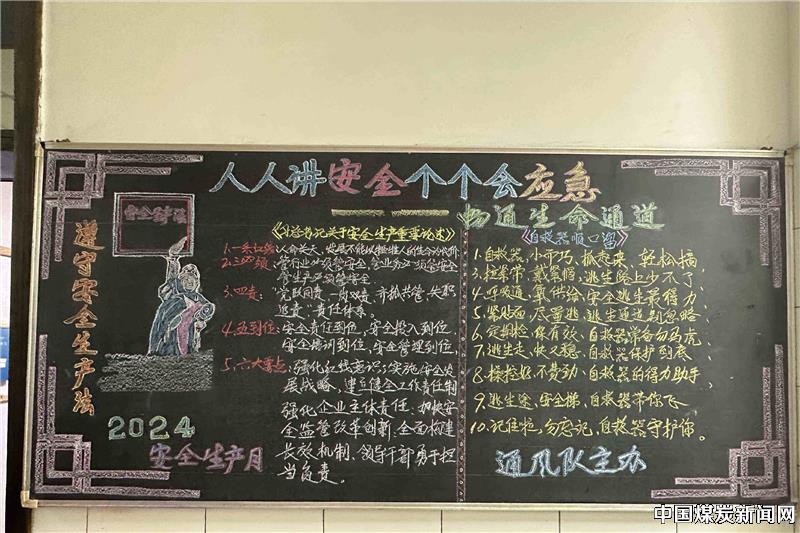 人人讲安全个个会应急
畅通生命通道
遵守安全生产法
2024
安全生产月
《总书记关于安全生产重要论述》
1.一条红线:人命关天,发展不能以牺牲人的生命为代价
管行业必须管安全,管业务必须管安全
管生产必须管安全
3.四责:"党政同责,一岗双责,齐抓共管,失职
追责"责任体系。
4.五到位:安全责任到位,安全投入到位,
安全培训到位,安全管理到位,
5.六大要点:强化红线意识;实施安全发
展战略,建立健全工作责任制
强化企业主体责任,加快安
全监管改革创新,全面构建
长效机制,领导干部勇于担
当负责。
《自救器顺口溜》
1.自救器,小而巧,抓起来,轻松搞,
逃生路上少不了
4.呼吸通,氧供给,安全逃生最得力
逃生通道别忽略
6.定期检,保有效,自救器常备勿马虎
7.逃生走,快又稳,自救器保护到底
8.操控好,不费劲,自救器的得力助手
9.逃生途,安全梯,自救器带你飞
10.记住啦,勿忘记,自救器守护你。
通风队主办
中国煤炭新闻网